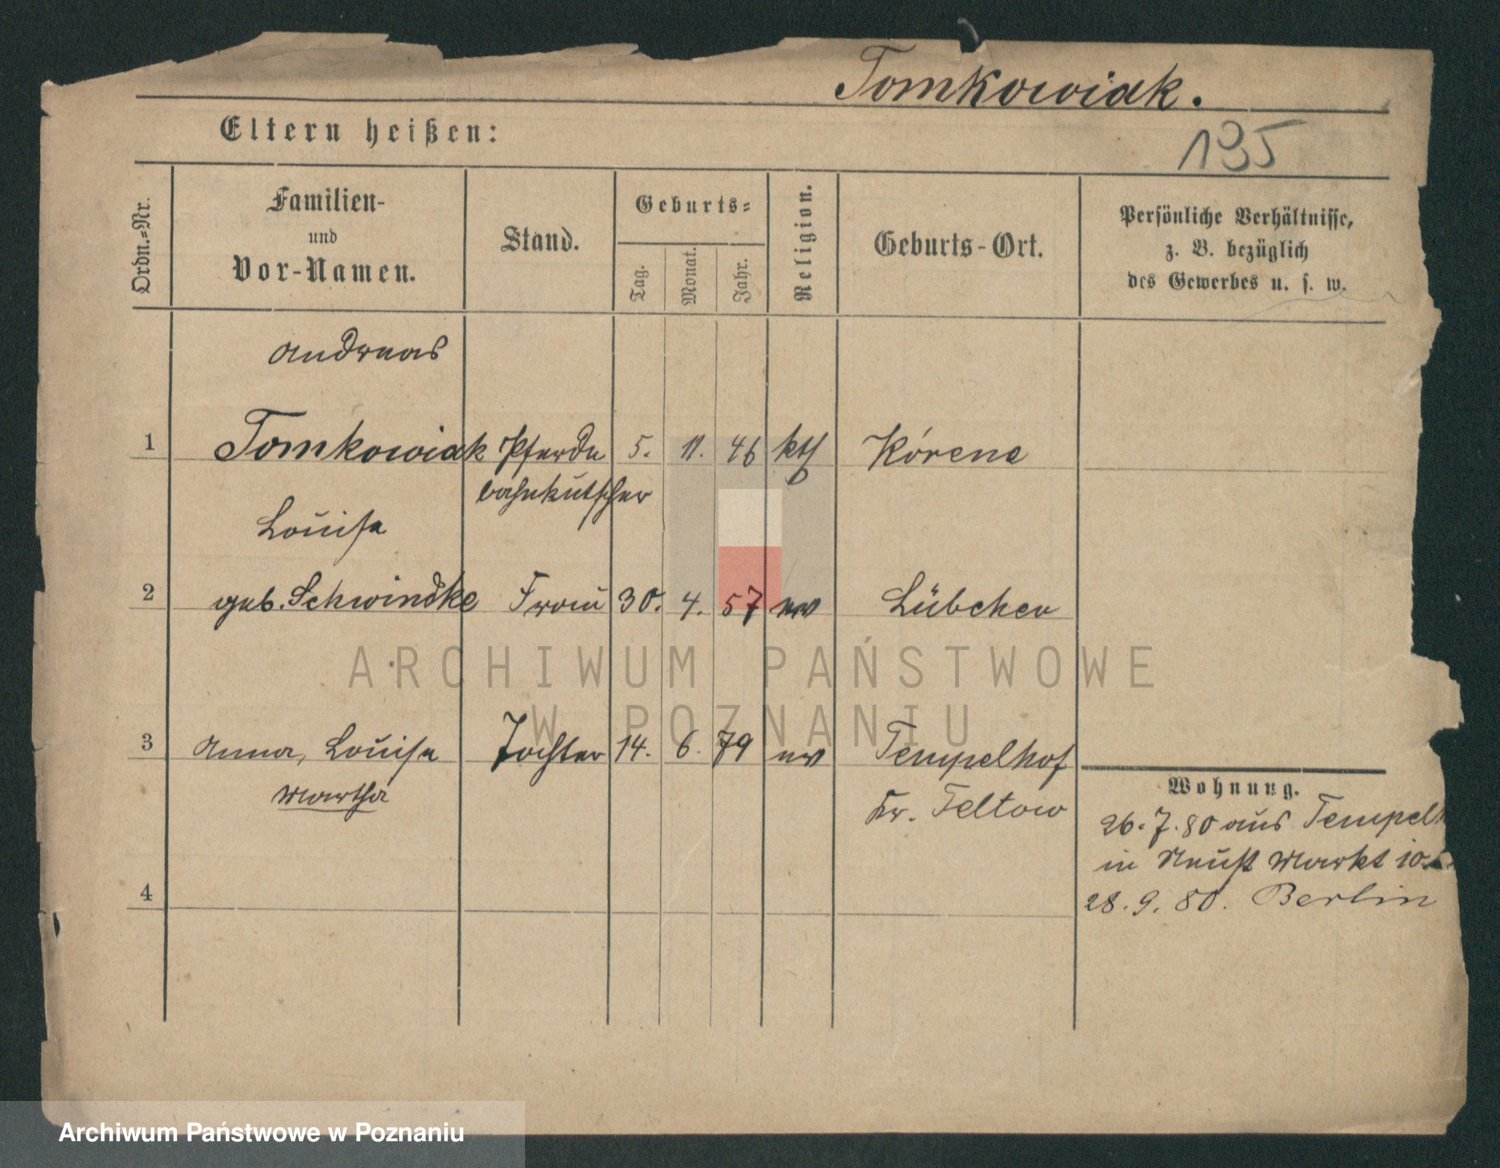 Tomkowiak.
Eltern heißen:
195
Ordn.=Nr.
Familien-
und
Vor-Namen.
Stand.
Geburts=
Tag.
Monat.
Jahr.
Religion.
Geburts-Ort.
Persönliche Verhältnisse,
z. B. bezüglich
des Gewerbes u. s. w.
Andreas
1 Tomkowiak Pferde 5. 11. 46 kth Kórene
bahnkutscher
Louise
2 geb. Schwindke Frau 30. 4. 57 ev Lübchen
ARCHIWUM PAŃSTWOWE
W POZNANIU
3 Anna, Louise Tochter 14. 6. 79 ev Tempelhof
Martha Kr. Teltow
Wohnung.
26.7.80 aus Tempelh
in Neust Markt 10
28.9.80. Berlin
4
Archiwum Państwowe w Poznaniu